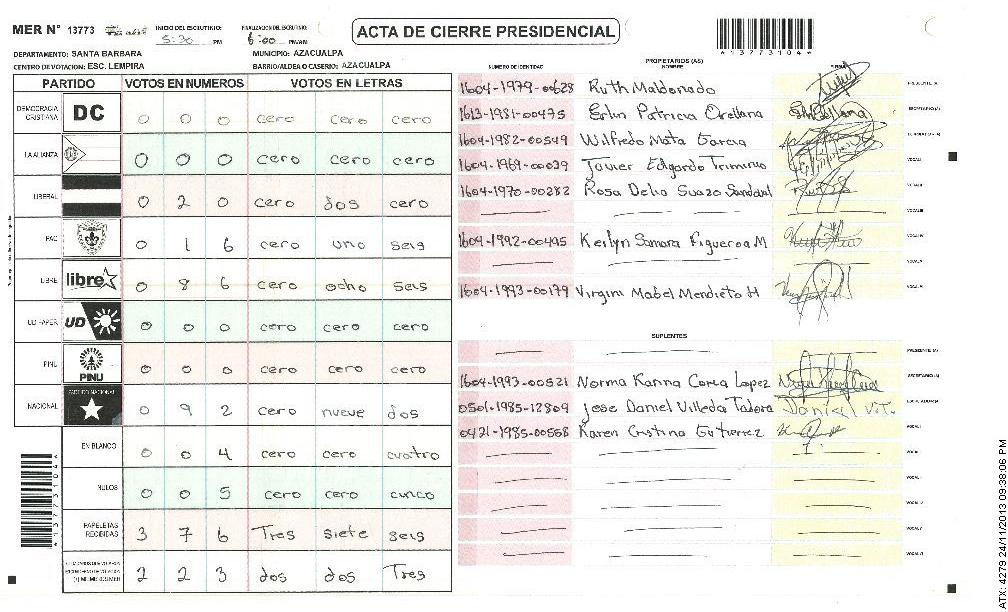 MER Nº 13773
INICIO DEL ESCRUTINIO: 5:30 PM
FINALIZACION DEL ESCRUTINIO: 6:00 PM/AM
ACTA DE CIERRE PRESIDENCIAL
*13773104*
DEPARTAMENTO: SANTA BARBARA
MUNICIPIO: AZACUALPA
CENTRO DE VOTACION: ESC. LEMPIRA
BARRIO/ALDEA O CASERIO: AZACUALPA
PARTIDO VOTOS EN NUMEROS VOTOS EN LETRAS
DEMOCRACIA CRISTIANA DC 0 0 0 cero cero cero
LA ALIANZA 0 0 0 cero cero cero
LIBERAL 0 2 0 cero dos cero
PAC 0 1 6 cero uno seis
LIBRE libre 0 8 6 cero ocho seis
UD FAPER UD 0 0 0 cero cero cero
PINU PINU 0 0 0 cero cero cero
NACIONAL PARTIDO NACIONAL 0 9 2 cero nueve dos
EN BLANCO 0 0 4 cero cero cuatro
NULOS 0 0 5 cero cero cinco
PAPELETAS RECIBIDAS 3 7 6 Tres siete seis
2 2 3 dos dos Tres
*13773104*
PROPIETARIOS (AS)
NUMERO DE IDENTIDAD NOMBRE FIRMA
1604-1979-00628 Ruth Maldonado PRESIDENTE (A)
1613-1981-00475 Erlin Patricia Orellana SECRETARIO (A)
1604-1982-00549 Wilfredo Mata Garcia ESCRUTADOR (A)
1604-1969-00039 Javier Edgardo Trimino VOCAL I
1604-1970-00282 Rosa Delia Suazo Sandoval VOCAL II
VOCAL III
1604-1992-00495 Keilyn Samara Figueroa M VOCAL IV
VOCAL V
1604-1993-00179 Virgini Mabel Mendieto H VOCAL VI
SUPLENTES
PRESIDENTE (A)
1604-1993-00521 Norma Karina Corea Lopez SECRETARIO (A)
0501-1985-12809 Jose Daniel Villeda Tabora Daniel V.T. ESCRUTADOR (A)
0421-1985-00568 Karen Cristina Gutierrez VOCAL I
ATX: 4279 24/11/2013 09:38:06 PM